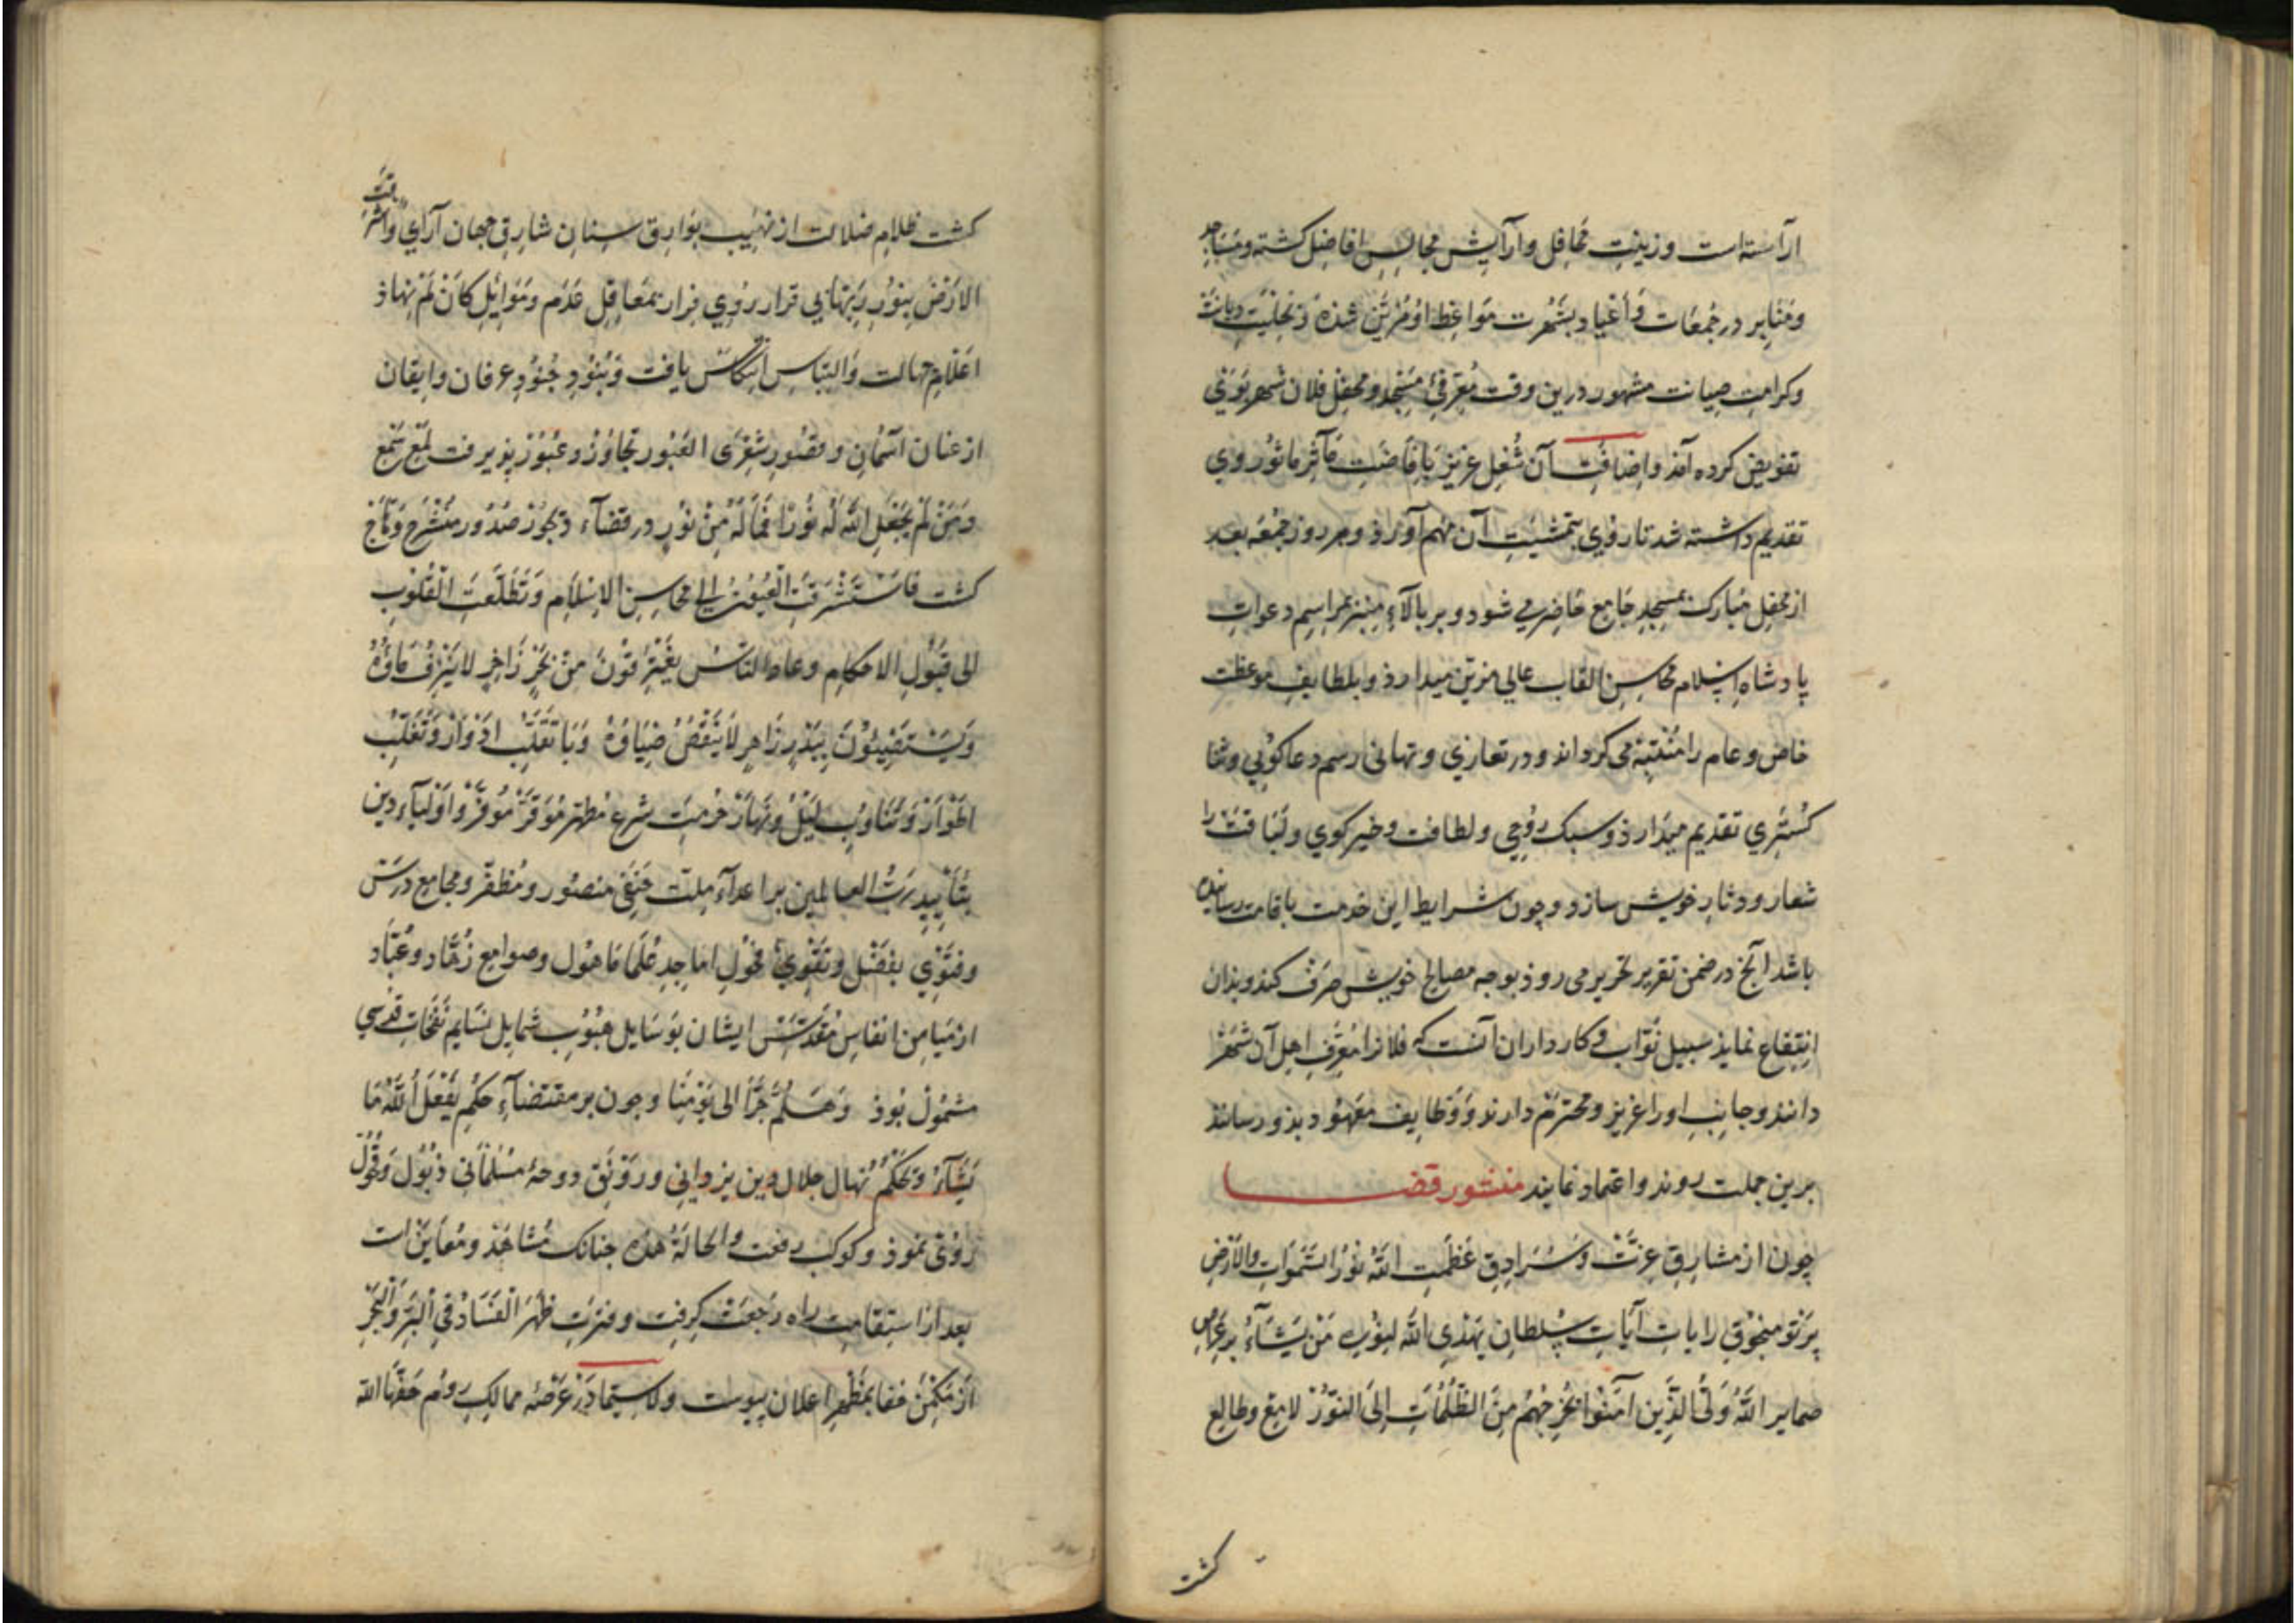 ارآسته است و زینتِ مَحافِل و آرایشِ مجالِسِ افاضِل کشته و مَسَاجِد
و مَنَابِر در جُمعَات وَ أعْیاد بشُهْرت مَوَاعِظ او مُزَیَّن شده و بحلیَتِ دیانَت
و کرامتِ صیانت مشهور درین وقت مُعَرِّفیِ مَسْجِد و محفِل فلان شهر بَوَیْ
تفویض کرده آمذ و اضافتِ آن شُغلِ عزیز بافاضَتِ مَآثِر ماثور وی
تقدیم داشته شد تا روی بتمشیَتِ آن مهم آورذ و هر روز جمعه بعد
از محفِل مبارک بمسجدِ جامع حَاضِر می شود و بر بالآءِ مِنبر بمراسِم دعواتِ
پادشاهِ اِسْلام محَاسِنِ القاب عالی مزیّن میدارذ و بلطایفِ موعظت
خاص و عام را مُنْتَبِه می کرداند و در تعازی و تهانی رسم دعا کویی و ثنا
کُسْتَری تقدیم میدارذ و سبک روحی و لطافت و خیر کوی و لَبَاقت را
شعار و دثارِ خویش سازد و چون شرایطِ این خدمت باقامت رسانیده
باشد آنج در ضمن تقریر تحریر می روذ بوجه مصالح خویش صَرْف کند و بذان
انِتِفاع نمایذ سبیل نوّاب و کارداران آنست که فلانرا مُعَرِّفِ اهل آن شَهْر
دانند و جانبِ او را عزیز و محترم دارند وَ وَظایفِ معهُود بذو رسانند
برین جملت روند و اعتماد نمایند منشور قضا
چون از مشارِقِ عِزّتْ وَ سُرَادِقِ عَظَمت اللهُ نُورُ السَّمَوَاتِ وَالأَرْضِ
پرتو منجوقِ رایاتِ آیاتِ سُلطانِ یَهْدِی الله لِنُورِهِ مَنْ یَشَآءُ بر عِرَاصِ
ضمایر اللهُ وَلیُّ الَّذِینَ آمَنُوا یُخْرِجُهُم مِنَ الظُّلُمَاتِ اِلَی النُّوْر لامِعْ و طالِع
کشت
کشت ظلامِ ضلالت از نهیبِ بَوَارِقِ سِنانِ شارِقِ جهان آرایِ وَاَشْرَقَتِ
الارْضُ بِنُورِ رَبّهَا بی قرار رُوی فِرار بمَعَاقِلِ عَدَم وَ مَوَایِلِ کَاَنْ لَمْ نهاذ
اعْلامِ جهالت وَ التباسِ اِنتکاس یافت وَ بُنُودِ جُنُودِ عرفان و ایقان
از عنان آسْمَان و قصُورِ شِعْرَی العَبُور تجَاوُزْ و عُبُوْر پذیرفت لُمَع شمعِ
وَمَنْ لَمْ یَجْعَلِ اللهُ لَهُ نُورًا فَمَا لَهُ مِنْ نُورٍ در فضآءِ دیجُورِ صُدُور مُنْشَرِح وَ
کشت فاسْتَشْرَقَتِ الْعُیُونُ اِلی محَاسِنِ الاِسْلَامِ وَتَطَلَّعَتِ الْقُلُوْبِ
الی قبُولِ الاحکام و عامه النّاسُ یَغْتَرِفُوْنَ مِنْ بَحْرٍ زَاخِرٍ لا یَنْزِفُ مَاؤُهُ
وَ یَسْتَضِیئُوْنَ بِبَدْرٍ زَاهِرٍ لَا یَنْقُصُ ضِیَاؤُهُ وَ بَا تَقَلُّبِ ادْوَارْ وَ تَغَلُّبِ
اطْوَارْ وَ تَنَاوُبِ لَیْلُ و نَهَارْ حُرْمَتِ شرعِ مُطَهَّر مُوَقَّرْ مُوَفَّرْ و اَوْلیآءِ دین
بتَأیِیدِ رَبُّ العالمین بر اعدآءِ مِلّت حَنَفی منصُور و مُظَفّر و مجامِع درَسَ
و فتوِّی بفضْل و تقویِ فُحُولِ اماجِدِ عُلَمَا مَاهُول و صوامِع زُهّاد و عُبّاد
از مَیَامنِ انفاسِ مُقَدَّسِ ایشان بوسَایل هبُوبِ شمایل نسَایم نَفَحَاتِ قُدسی
مشمُولْ بُوذ وَ هَلُمَّ جَرًّا الی یَوْمِنَا و چون بر مقتضآءِ حکمِ یَفْعَلُ اللهُ مَا
یَشَآءُ وَ یَحْکُمُ نهال جلال دین یزدانی و رَوْنَق دوحهٔ مسلمانی ذبُول وَ قُحُول
رُوْی نموذ و کوکبِ رفعت و الحالَةُ هذه چنانک مُشاهَد و مُعَایَنْ است
بعد از استقامت راه رَجعَتْ کرفت و فترَتِ ظَهَرَ الْفَسَادُ فِی الْبَرِّ وَالْبَحْرِ
اَزْ مَکْمَنِ خفا بمَظْهَرِ اعلان پیوست و لا سِیَّما دَرْ عَرْصَهٔ ممالِکِ رُوم حَفّهَا الله